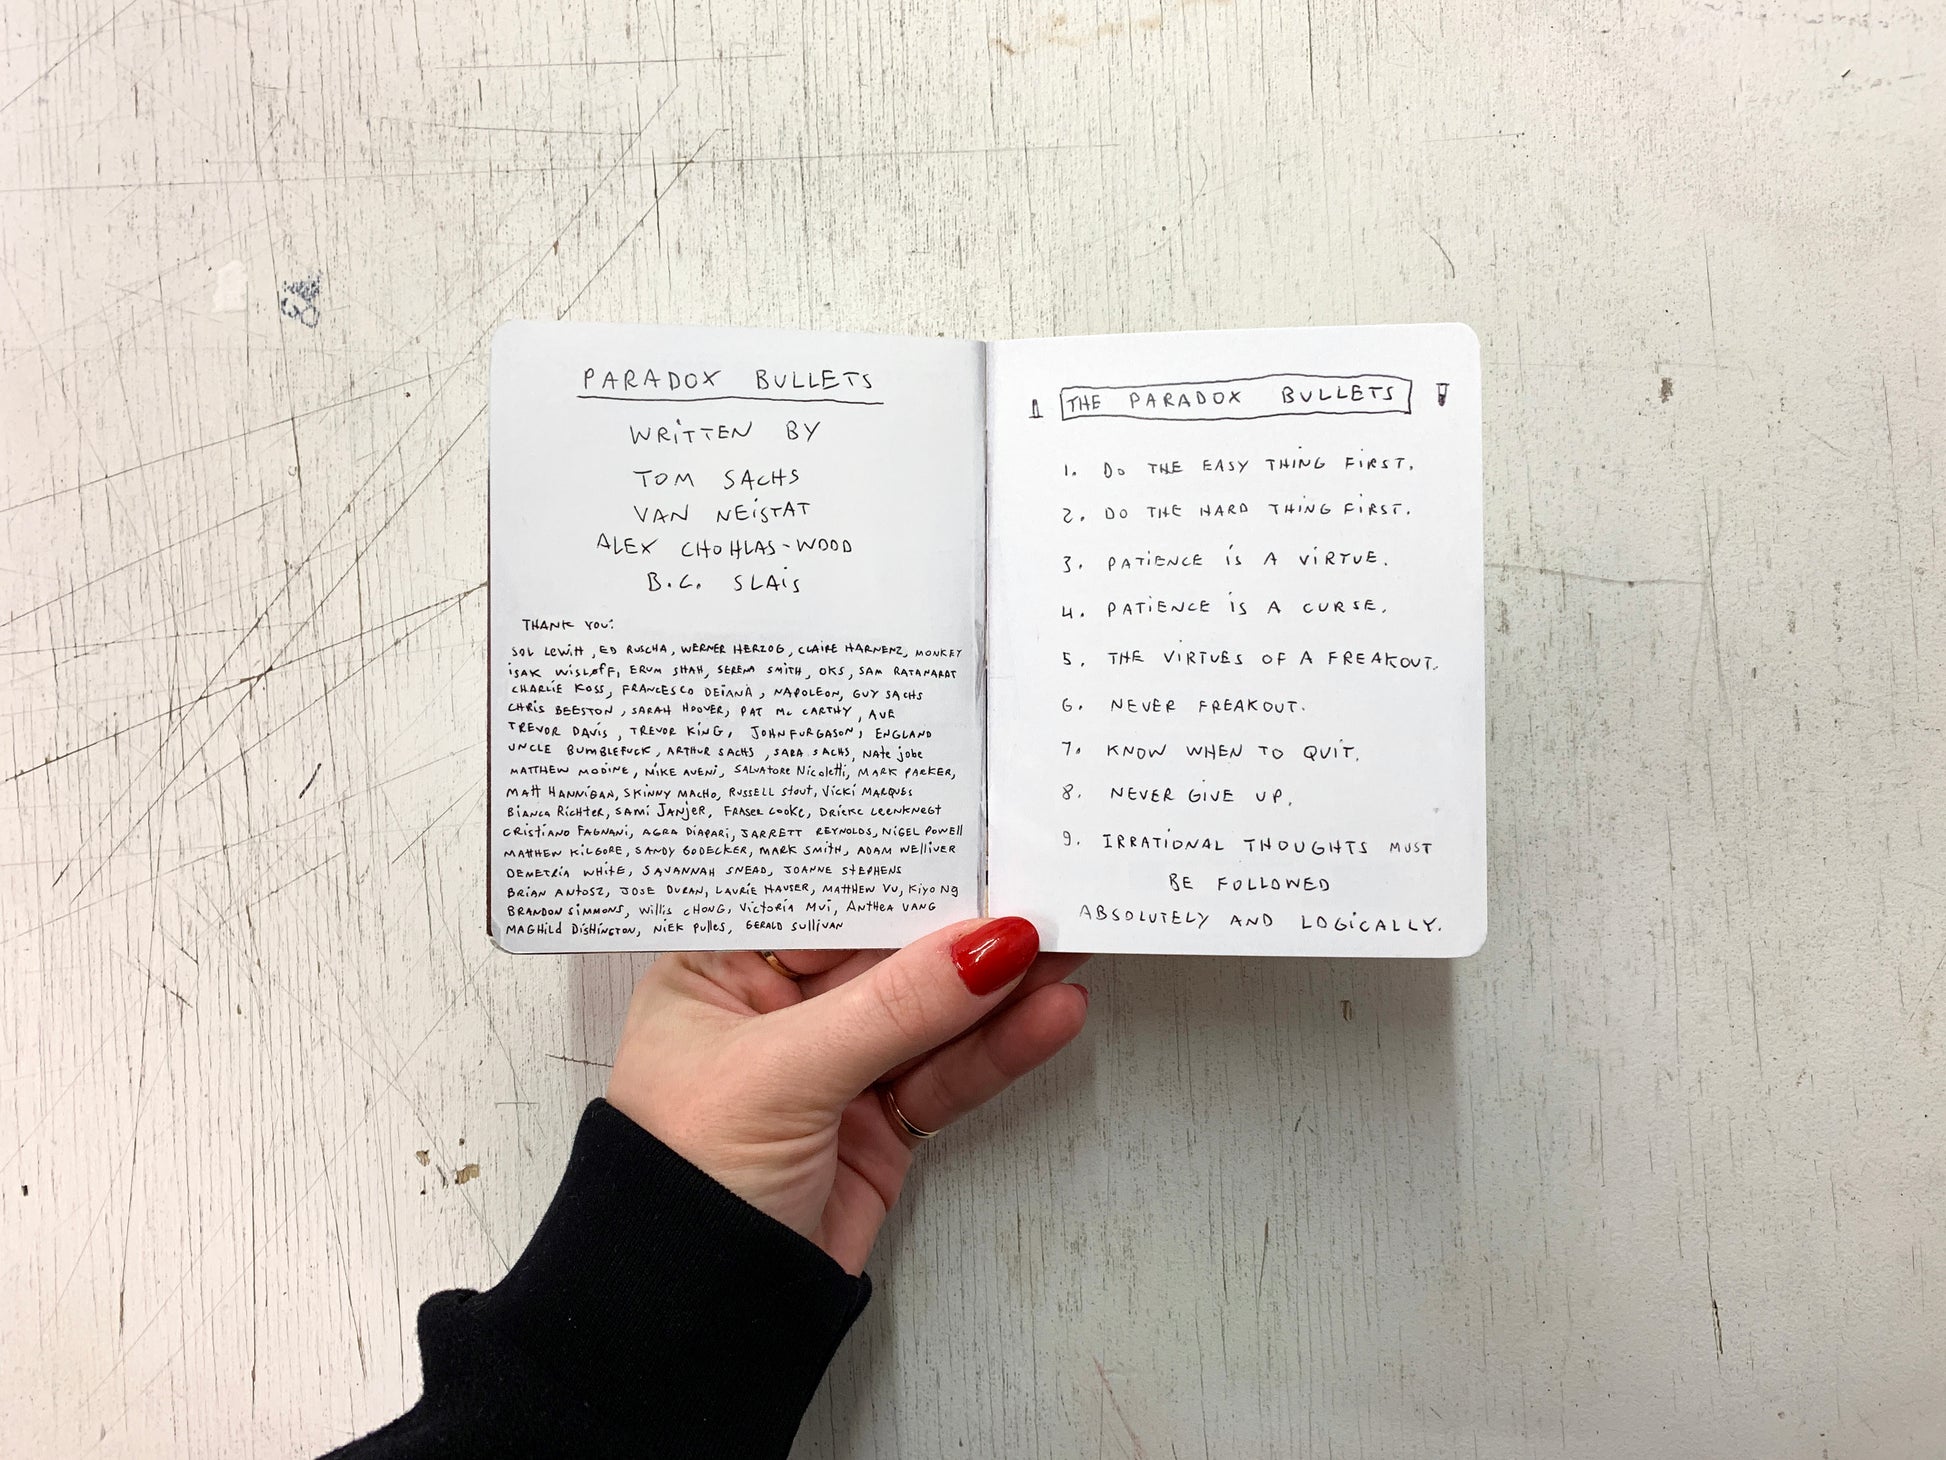 PARADOX BULLETS
WRITTEN BY
TOM SACHS
VAN NEISTAT
ALEX CHOHLAS-WOOD
B.C. SLAIS
THANK YOU:
SOL LEWITT, ED RUSCHA, WERNER HERZOG, CLAIRE HARNENZ, MONKEY
ISAK WISLØFF, ERUM SHAH, SERENA SMITH, OKS, SAM RATANARAT
CHARLIE KOSS, FRANCESCO DEIANA, NAPOLEON, GUY SACHS
CHRIS BEESTON, SARAH HOOVER, PAT Mc CARTHY, AVE
TREVOR DAVIS, TREVOR KING, JOHN FURGASON, ENGLAND
UNCLE BUMBLEFUCK, ARTHUR SACHS, SARA SACHS, NATE JOBE
MATTHEW MODINE, MIKE AVENI, SALVATORE NICOLETTI, MARK PARKER,
MATT HANNIGAN, SKINNY MACHO, RUSSELL STOUT, VICKI MARQUES
BIANCA RICHTER, SAMI JANJER, FRASER COOKE, DRIEKE LEENKNEGT
CRISTIANO FAGNANI, AGRA DIAPARI, JARRETT REYNOLDS, NIGEL POWELL
MATTHEW KILGORE, SANDY BODECKER, MARK SMITH, ADAM WELLIVER
DEMETRIA WHITE, SAVANNAH SNEAD, JOANNE STEPHENS
BRIAN ANTOSZ, JOSE DURAN, LAURIE HAUSER, MATTHEW VU, KIYO NG
BRANDON SIMMONS, WILLIS CHONG, VICTORIA MUI, ANTHEA VANG
MAGHILD DISHINGTON, NIEK PULLES, GERALD SULLIVAN
THE PARADOX BULLETS
1. DO THE EASY THING FIRST.
2. DO THE HARD THING FIRST.
3. PATIENCE IS A VIRTUE.
4. PATIENCE IS A CURSE.
5. THE VIRTUES OF A FREAKOUT.
6. NEVER FREAKOUT.
7. KNOW WHEN TO QUIT.
8. NEVER GIVE UP.
9. IRRATIONAL THOUGHTS MUST
BE FOLLOWED
ABSOLUTELY AND LOGICALLY.